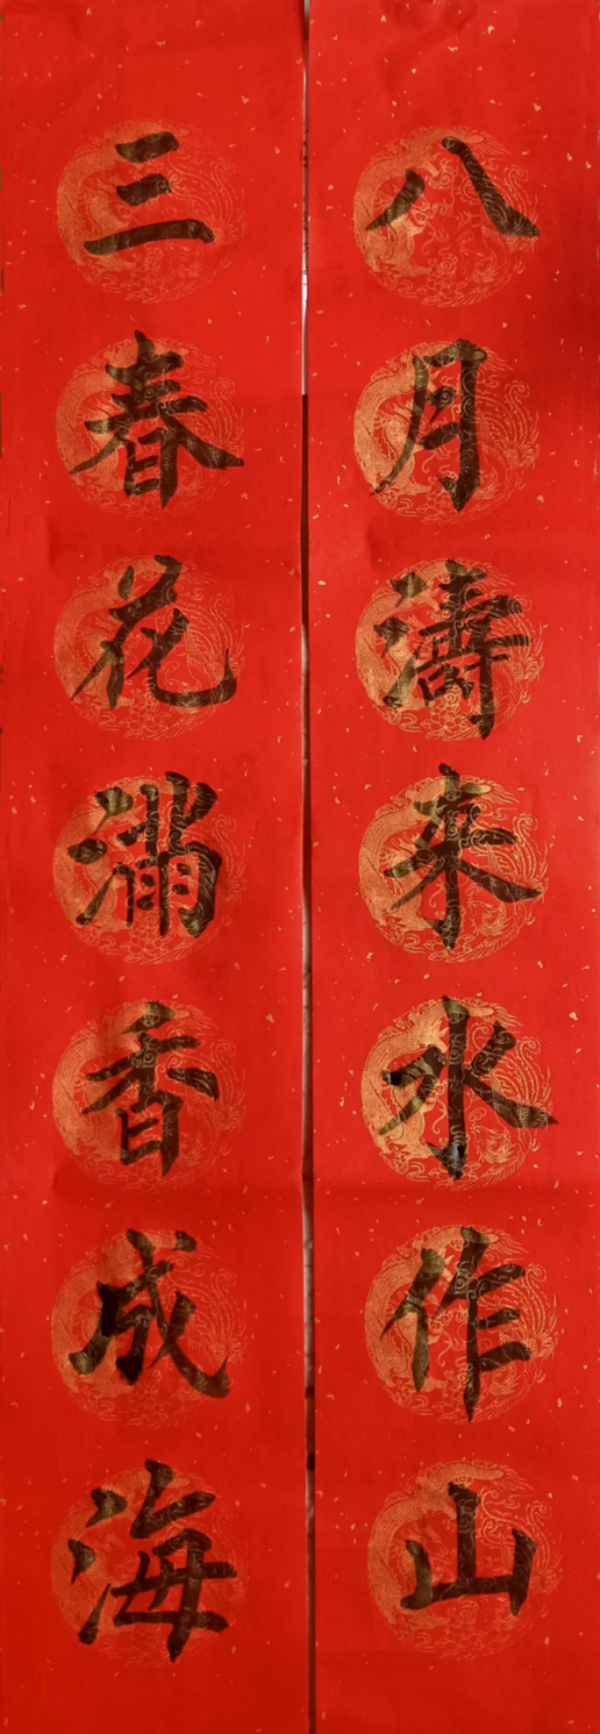 八月濤来水作山
三春花滿香成海